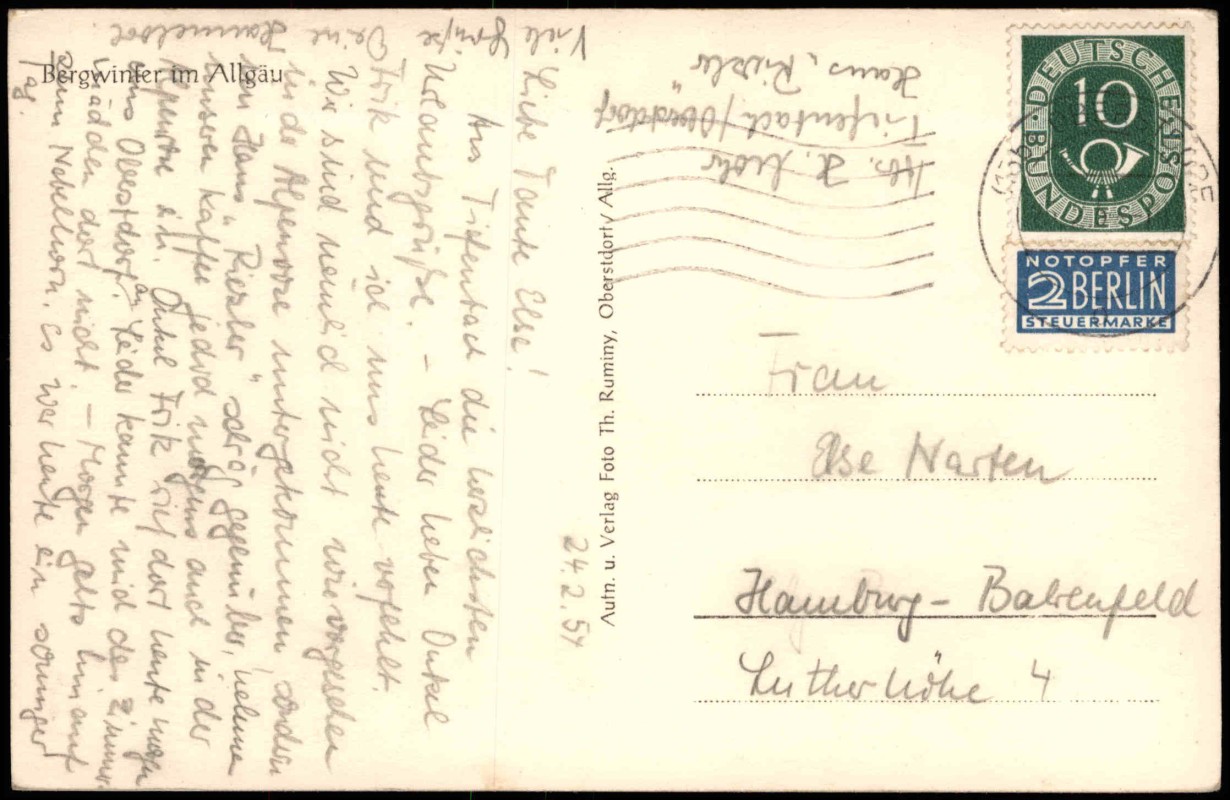 Bergwinter im Allgäu
24.2.54
Liebe Tante Else!
Aus Tiefenbach die herzlichsten
Urlaubsgrüße. – Leider haben Onkel
Fritz und ich uns heute verfehlt.
Wir sind nämlich nicht wie vorgesehen
in der Alpenrose untergekommen sondern
im Haus „Riezler" schräg gegenüber, nehmen
unseren Kaffee jedoch morgens auch in der
Alpenrose ein. Onkel Fritz rief dort heute morgen
aus Oberstdorf an. Leider kannte mich das Zimmer-
mädchen dort nicht. – Morgen gehts hinauf
zum Nebelhorn. Es war heute ein sonniger
Tag.
Viele Grüße
Deine
Hannelore
Abs. H.
Tiefenbach/Oberstdorf
Haus „Riezler"
Aufn. u. Verlag Foto Th. Ruminy, Oberstdorf/Allg.
DEUTSCHE BUNDESPOST
10
NOTOPFER
2 BERLIN
STEUERMARKE
Frau
Else Narten
Hamburg-Bahrenfeld
Lutherhöhe 4